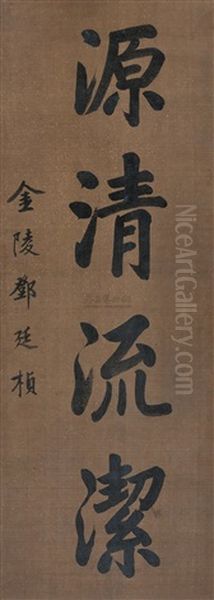 源清流潔
金陵鄧廷楨
NiceArtGallery.com